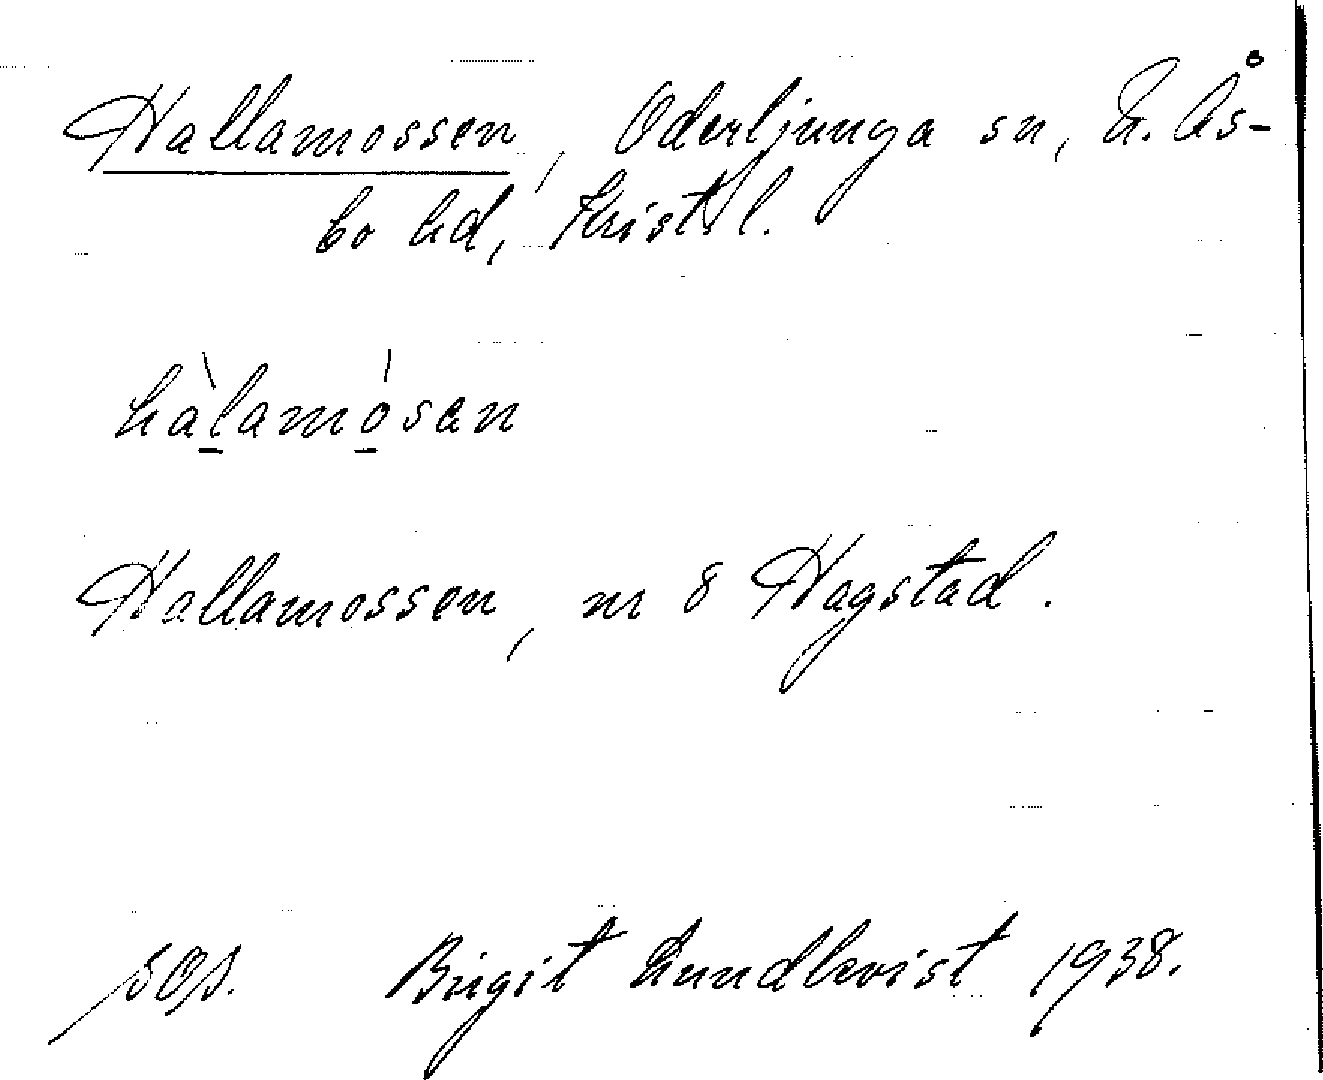 Hallamossen, Oderljunga sn, N. Ås-
bo hd, Krist. l.
hàlamósan
Hallamossen, nr 8 Hagstad.
SOS. Birgit Lundkvist 1938.